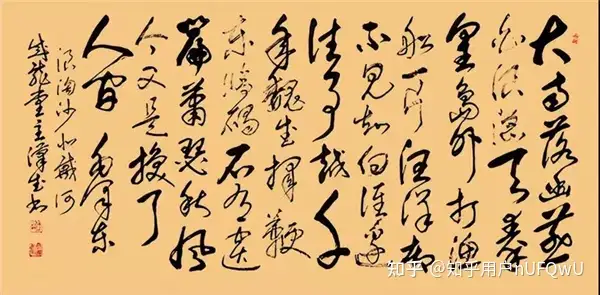 大雨落幽燕
白浪滔天秦
皇島外打渔
船一片汪洋都
不见知向谁边
往事越千
年魏武挥鞭
东临碣石有遗
篇萧瑟秋风
今又是换了
人间 毛泽东
浪淘沙北戴河
龙堂主
知乎 @知乎用户hUFQwU